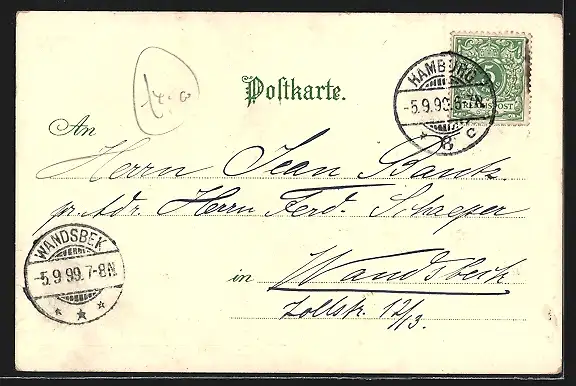 Postkarte.
HAMBURG
-5.9.99.6-7N
* 8 c
REICHSPOST
An
Herrn Jean Bantz
pr. Adr. Herrn Ferd. Schreper
WANDSBEK
-5.9.99.7-8N
* * *
in Wandsbeck
Zollstr. 12/13.